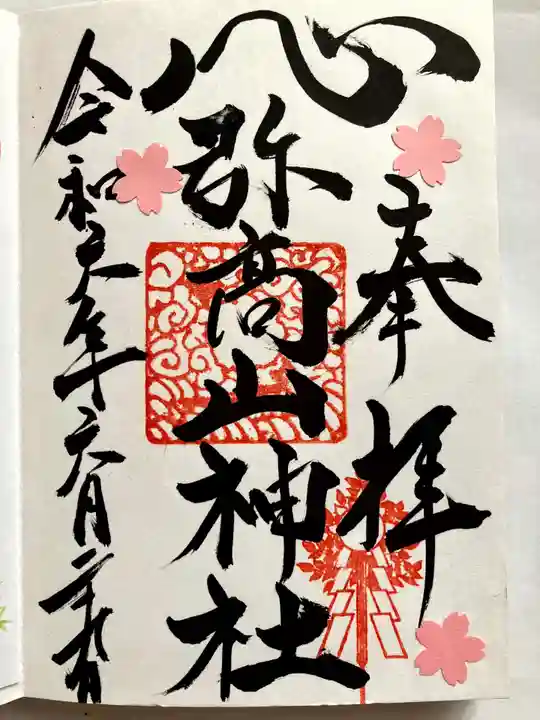 奉拝
弥高山神社
令和元年六月二十九日